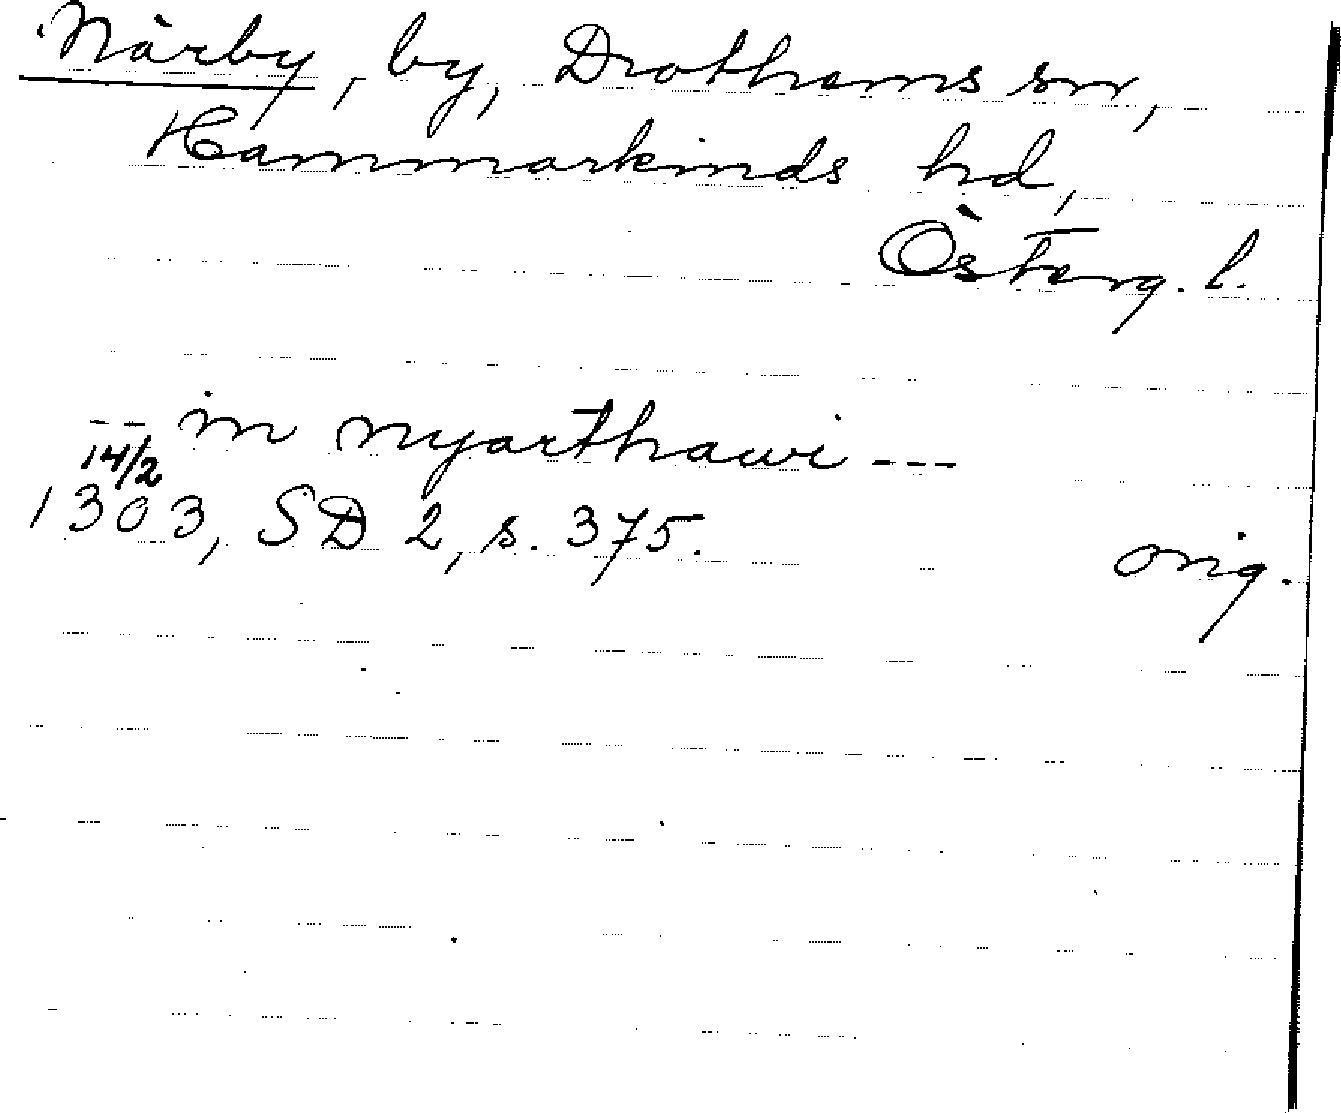 Närby, by, Drothems sn,
Hammarkinds hd,
Österg. l.
-- in nyarthawi ---
14/2
1303, SD 2, s. 375.
orig.